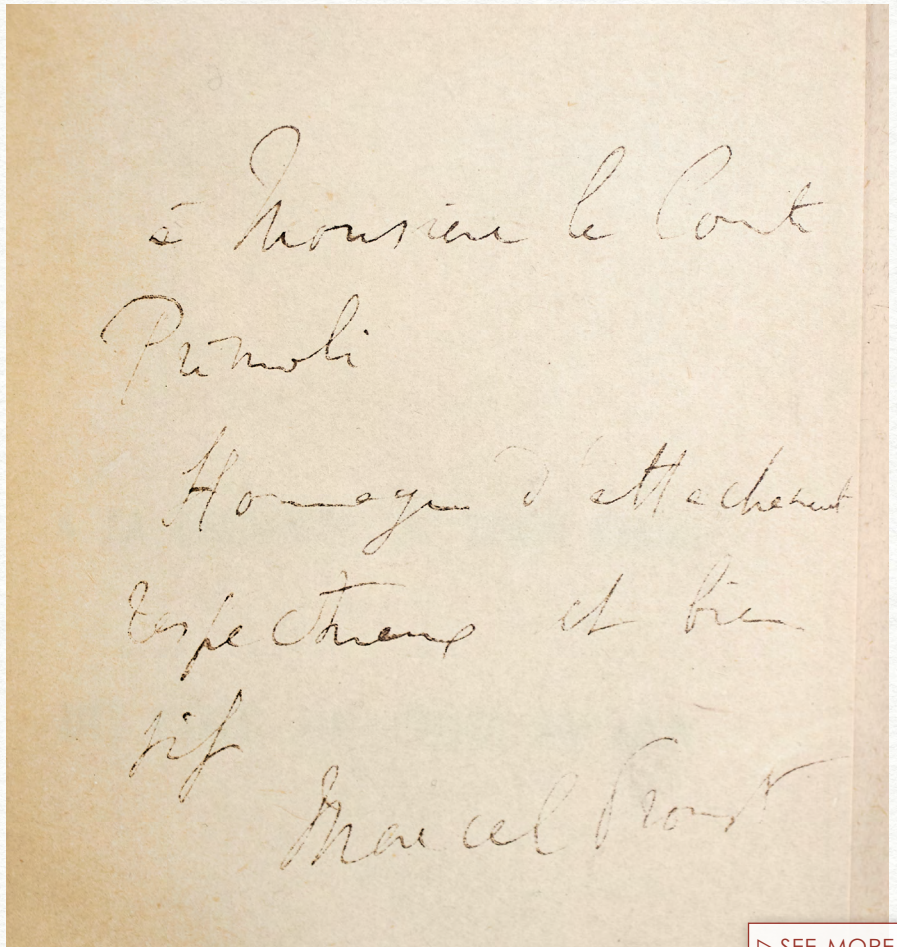 à Monsieur le Comte
Primoli
Hommage d'attachement
respectueux et bien
vif
Marcel Proust
▷ SEE MORE